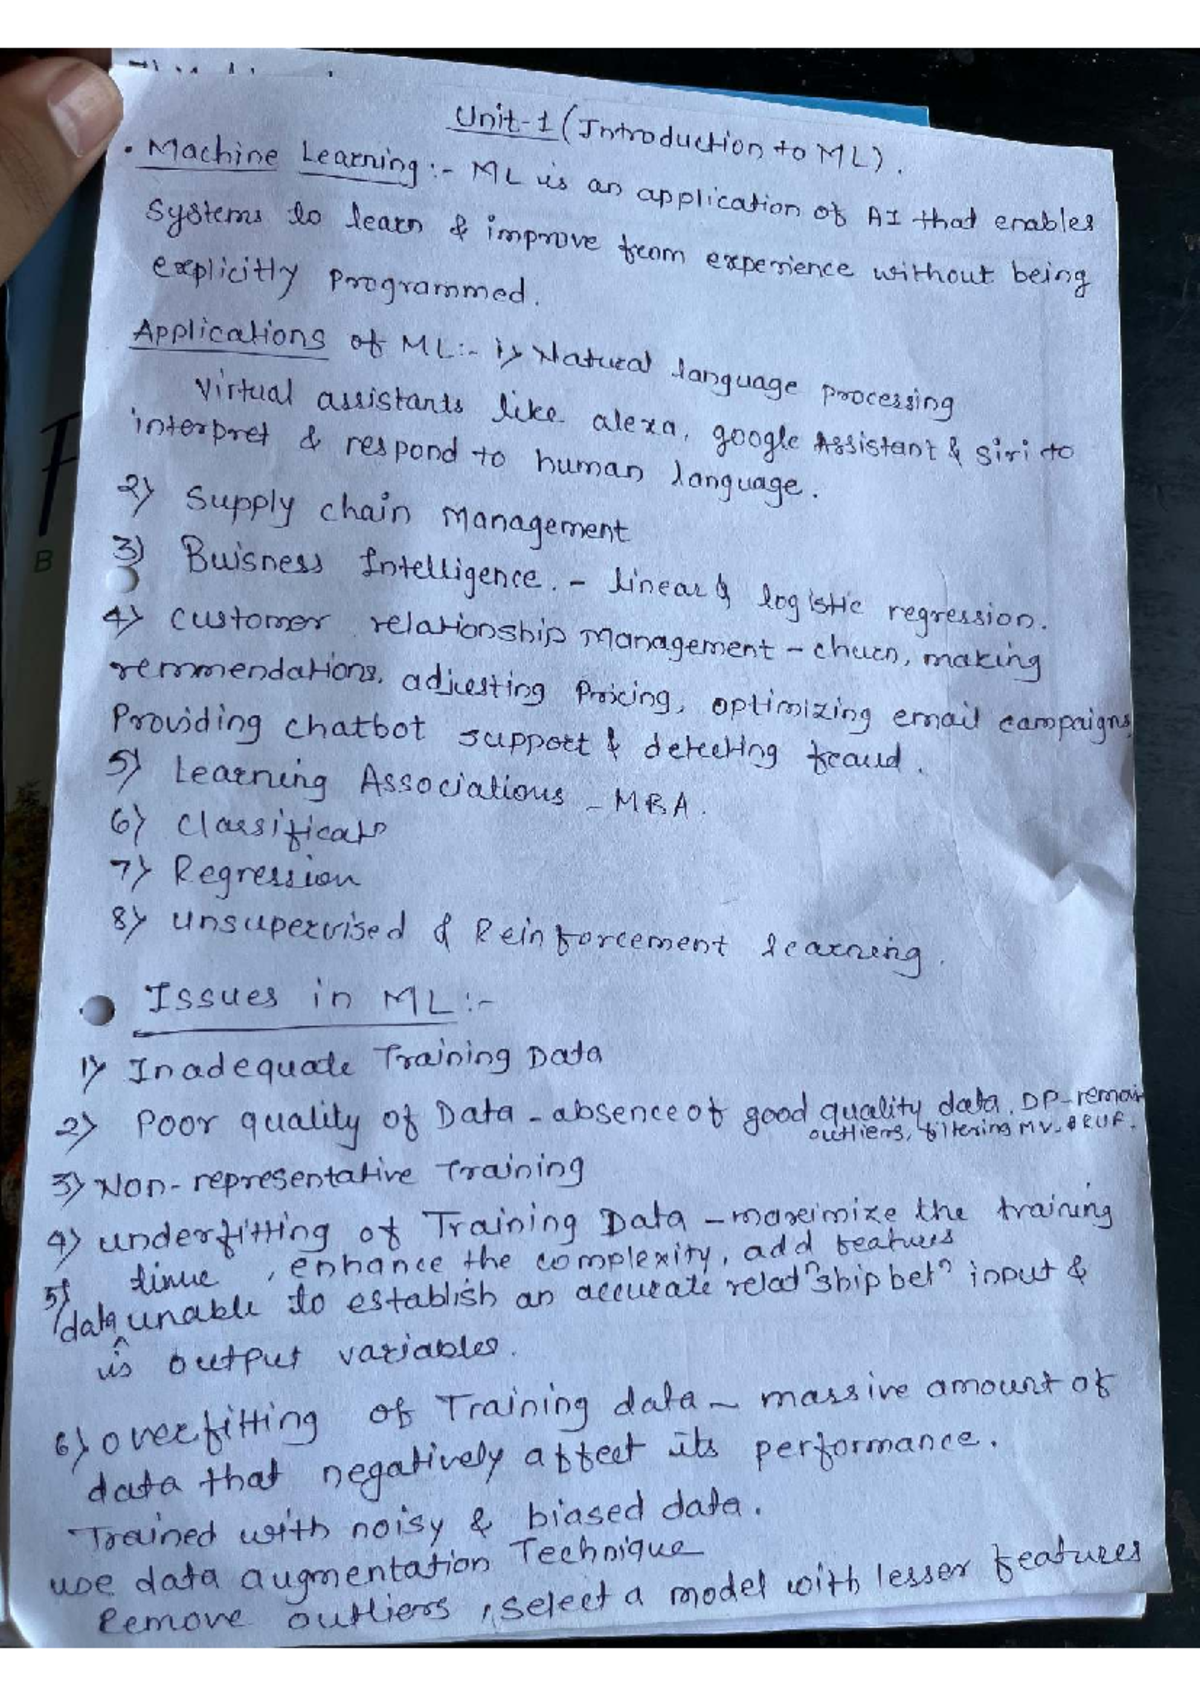 Unit-1 (Introduction to ML).
• Machine Learning :- ML is an application of AI that enables
systems to learn & improve from experience without being
explicitly programmed.
Applications of ML:- 1) Natural language processing
Virtual assistants like alexa, google Assistant & Siri to
interpret & respond to human language.
2) Supply chain Management
3) Buisness Intelligence. - linear & logistic regression.
4) Customer relationship Management - churn, making
remmendations, adjusting Pricing, optimizing email campaigns,
Providing chatbot support & detecting fraud.
5) Learning Associations - MBA.
6) Classificatn
7) Regression
8) Unsupervised & Reinforcement learning.
Issues in ML :-
1) Inadequate Training Data
2) Poor quality of Data - absence of good quality data. DP-
outliers, filtering MV.
3) Non-representative Training
4) Underfitting of Training Data - maximize the training
time, enhance the complexity, add features
5) data unable to establish an accurate relatnship betn input &
is output variables.
6) overfitting of Training data - massive amount of
data that negatively affect its performance.
Trained with noisy & biased data.
use data augmentation Technique
Remove outliers, select a model with lesser features